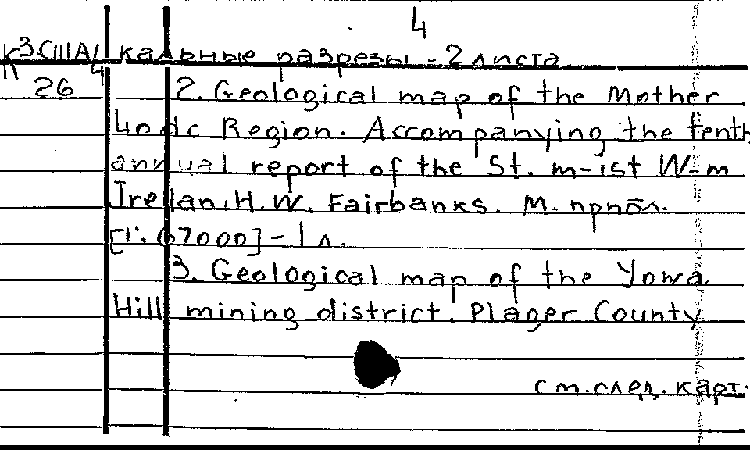 4
К3.США/4 кальные разрезы - 2 листа
26 2. Geological map of the Mother
Lodc Region. Accompanying the tenth
annual report of the St. m-ist W-m
Irellan, H.W. Fairbanks. М. прибл.
[1:67000] - 1 л.
3. Geological map of the Yowa
Hill mining district. Plager County
см.след.карт.